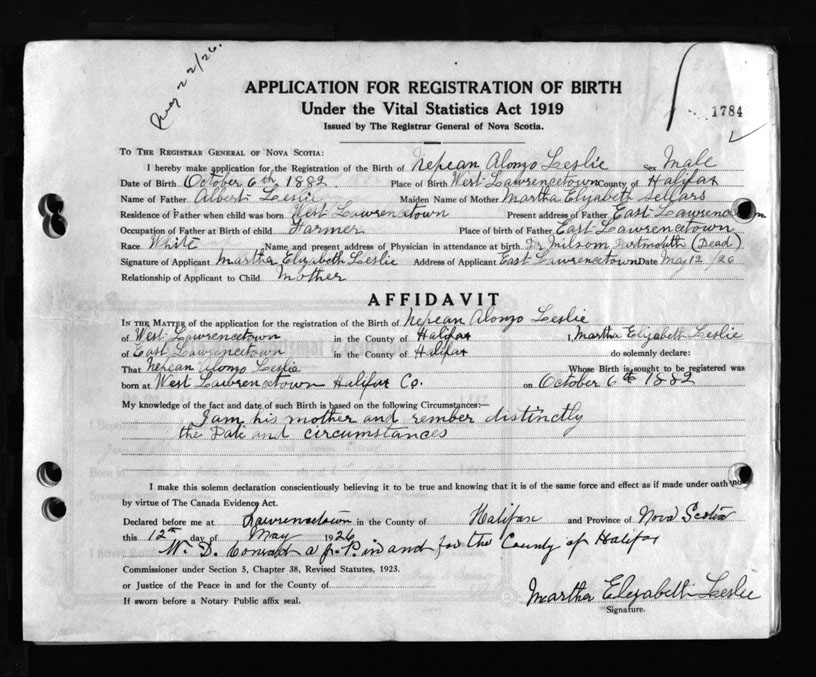 Aug 22/26.
APPLICATION FOR REGISTRATION OF BIRTH
Under the Vital Statistics Act 1919
Issued by The Registrar General of Nova Scotia.
1784
To The Registrar General of Nova Scotia:
I hereby make application for the Registration of the Birth of Nepean Alonzo Leslie Sex Male
Date of Birth October 6th 1882. Place of Birth West Lawrencetown County of Halifax
Name of Father Albert Leslie Maiden Name of Mother Martha Elizabeth Sellars
Residence of Father when child was born West Lawrencetown Present address of Father East Lawrencetown
Occupation of Father at Birth of child Farmer Place of birth of Father East Lawrencetown
Race White Name and present address of Physician in attendance at birth Dr Milsom Dartmouth (Dead)
Signature of Applicant Martha Elizabeth Leslie Address of Applicant East Lawrencetown Date May 12/26
Relationship of Applicant to Child Mother
AFFIDAVIT
In the Matter of the application for the registration of the Birth of Nepean Alonzo Leslie
of West Lawrencetown in the County of Halifax I, Martha Elizabeth Leslie
of East Lawrencetown in the County of Halifax do solemnly declare:
That Nepean Alonzo Leslie Whose Birth is sought to be registered was
born at West Lawrencetown Halifax Co. on October 6th 1882
My knowledge of the fact and date of such Birth is based on the following Circumstances:—
I am his mother and rember distinctly
the Date and circumstances
I make this solemn declaration conscientiously believing it to be true and knowing that it is of the same force and effect as if made under oath
by virtue of The Canada Evidence Act.
Declared before me at Lawrencetown in the County of Halifax and Province of Nova Scotia
this 12th day of May 1926
W. D. Conrad a J. P. in and for the County of Halifax
Commissioner under Section 5, Chapter 38, Revised Statutes, 1923.
or Justice of the Peace in and for the County of
If sworn before a Notary Public affix seal.
Martha Elezabeth Leslie
Signature.